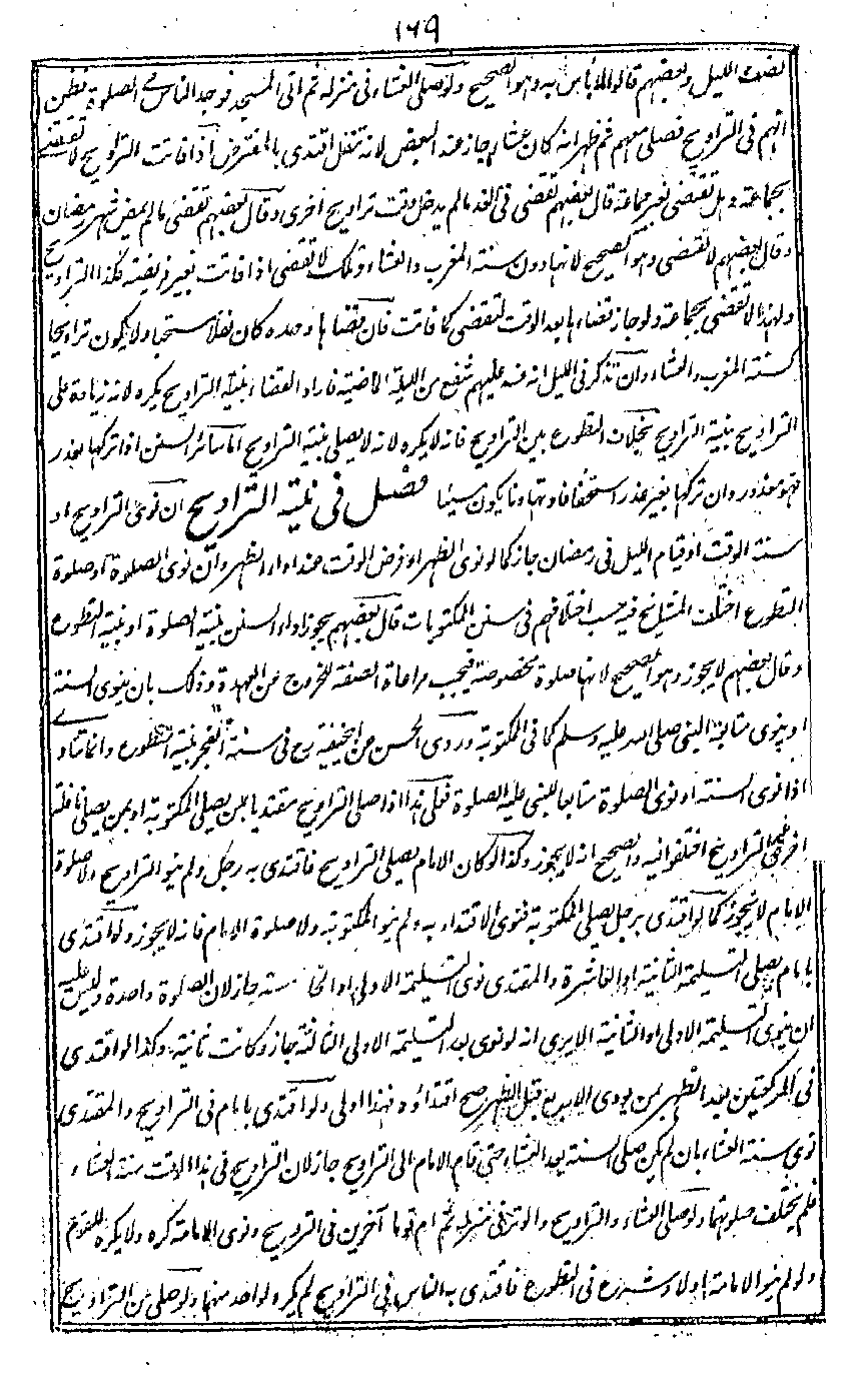 ١٦٩
نصف الليل وبعضهم قالوا لا بأس به وهو الصحيح ولو صلى العشاء فى منزله ثم اتى المسجد فوجد الناس فى الصلوة فظن
انهم فى التراويح فصلى معهم ثم ظهر انه كان عشاء جاز عند البعض لانه تنفل اقتدى بالمفترض اذا فاتت التراويح لا تقضى
بجماعة وهل تقضى بغير جماعة قال بعضهم تقضى فى الغد ما لم يدخل وقت تراويح اخرى وقال بعضهم تقضى ما لم يمض شهر رمضان
وقال بعضهم لا تقضى وهو الصحيح لانها دون سنة المغرب والعشاء وتلك لا تقضى اذا فاتت بغير فريضة فكذا التراويح
ولهذا لا تقضى بجماعة ولو جاز قضاءها بعد الوقت لتقضى كما فاتت فان قضاها وحده كان نفلا مستحبا ولا يكون تراويحا
كسنة المغرب والعشاء وان تذكر فى الليل انه فسد عليهم شفع من الليلة الماضية فاراد القضاء بنية التراويح يكره لانه زيادة على
التراويح بنية التراويح بخلاف التطوع بين التراويح فانه لا يكره لانه لا يصلى بنية التراويح اما سائر السنن اذا تركها بعذر
فهو معذور وان تركها بغير عذر استخفافا وتهاونا يكون مسيئا فصل فى نية التراويح ان نوى التراويح او
سنة الوقت او قيام الليل فى رمضان جاز كما لو نوى الظهر او فرض الوقت عند اداء الظهر وان نوى الصلوة او صلوة
التطوع اختلف المشايخ فيه حسب اختلافهم فى سنن المكتوبات قال بعضهم يجوز اداء السنن بنية الصلوة او بنية التطوع
وقال بعضهم لا يجوز وهو الصحيح لانها صلوة مخصوصة فيجب مراعاة الصفة للخروج عن العهدة وذلك بان ينوى السنة
او ينوى متابعة النبى صلى الله عليه وسلم كما فى المكتوبة وروى الحسن عن ابيحنيفة رح فى سنة الفجر بنية التطوع وانما تتادى
اذا نوى السنة او نوى الصلوة متابعا للنبى عليه الصلوة فعلى هذا اذا صلى التراويح مقتديا بمن يصلى المكتوبة او بمن يصلى نافلة
اخرى غير التراويح اختلفوا فيه والصحيح انه لا يجوز وكذا لو كان الامام يصلى التراويح فاقتدى به رجل ولم ينو التراويح ولا صلوة
الامام لا يجوز كما لو اقتدى برجل يصلى المكتوبة فنوى الاقتداء به ولم ينو المكتوبة ولا صلوة الامام فانه لا يجوز ولو اقتدى
بامام يصلى التسليمة الثانية او العاشرة والمقتدى نوى التسليمة الاولى او الخامسة جاز لان الصلوة واحدة وليس عليه
ان ينوى التسليمة الاولى او الثانية الا يرى انه لو نوى بعد التسليمة الاولى الثالثة جاز وكانت ثانية وكذا لو اقتدى
فى الركعتين بعد الظهر بمن يودى الاربع قبل الظهر صح اقتداؤه فهذا اولى ولو اقتدى بامام فى التراويح والمقتدى
نوى سنة العشاء بان لم يكن صلى السنة بعد العشاء حتى قام الامام الى التراويح جاز لان التراويح فى هذا الوقت سنة العشاء
فلم يختلف صلوتهما ولو صلى العشاء والتراويح والوتر فى منزله ثم ام قوما آخرين فى التراويح ونوى الامامة كره ولا يكره للقوم
ولو لم ينو الامامة اولا وشرع فى التطوع فاقتدى به الناس فى التراويح لم يكره لواحد منهما ولو صلى من التراويح